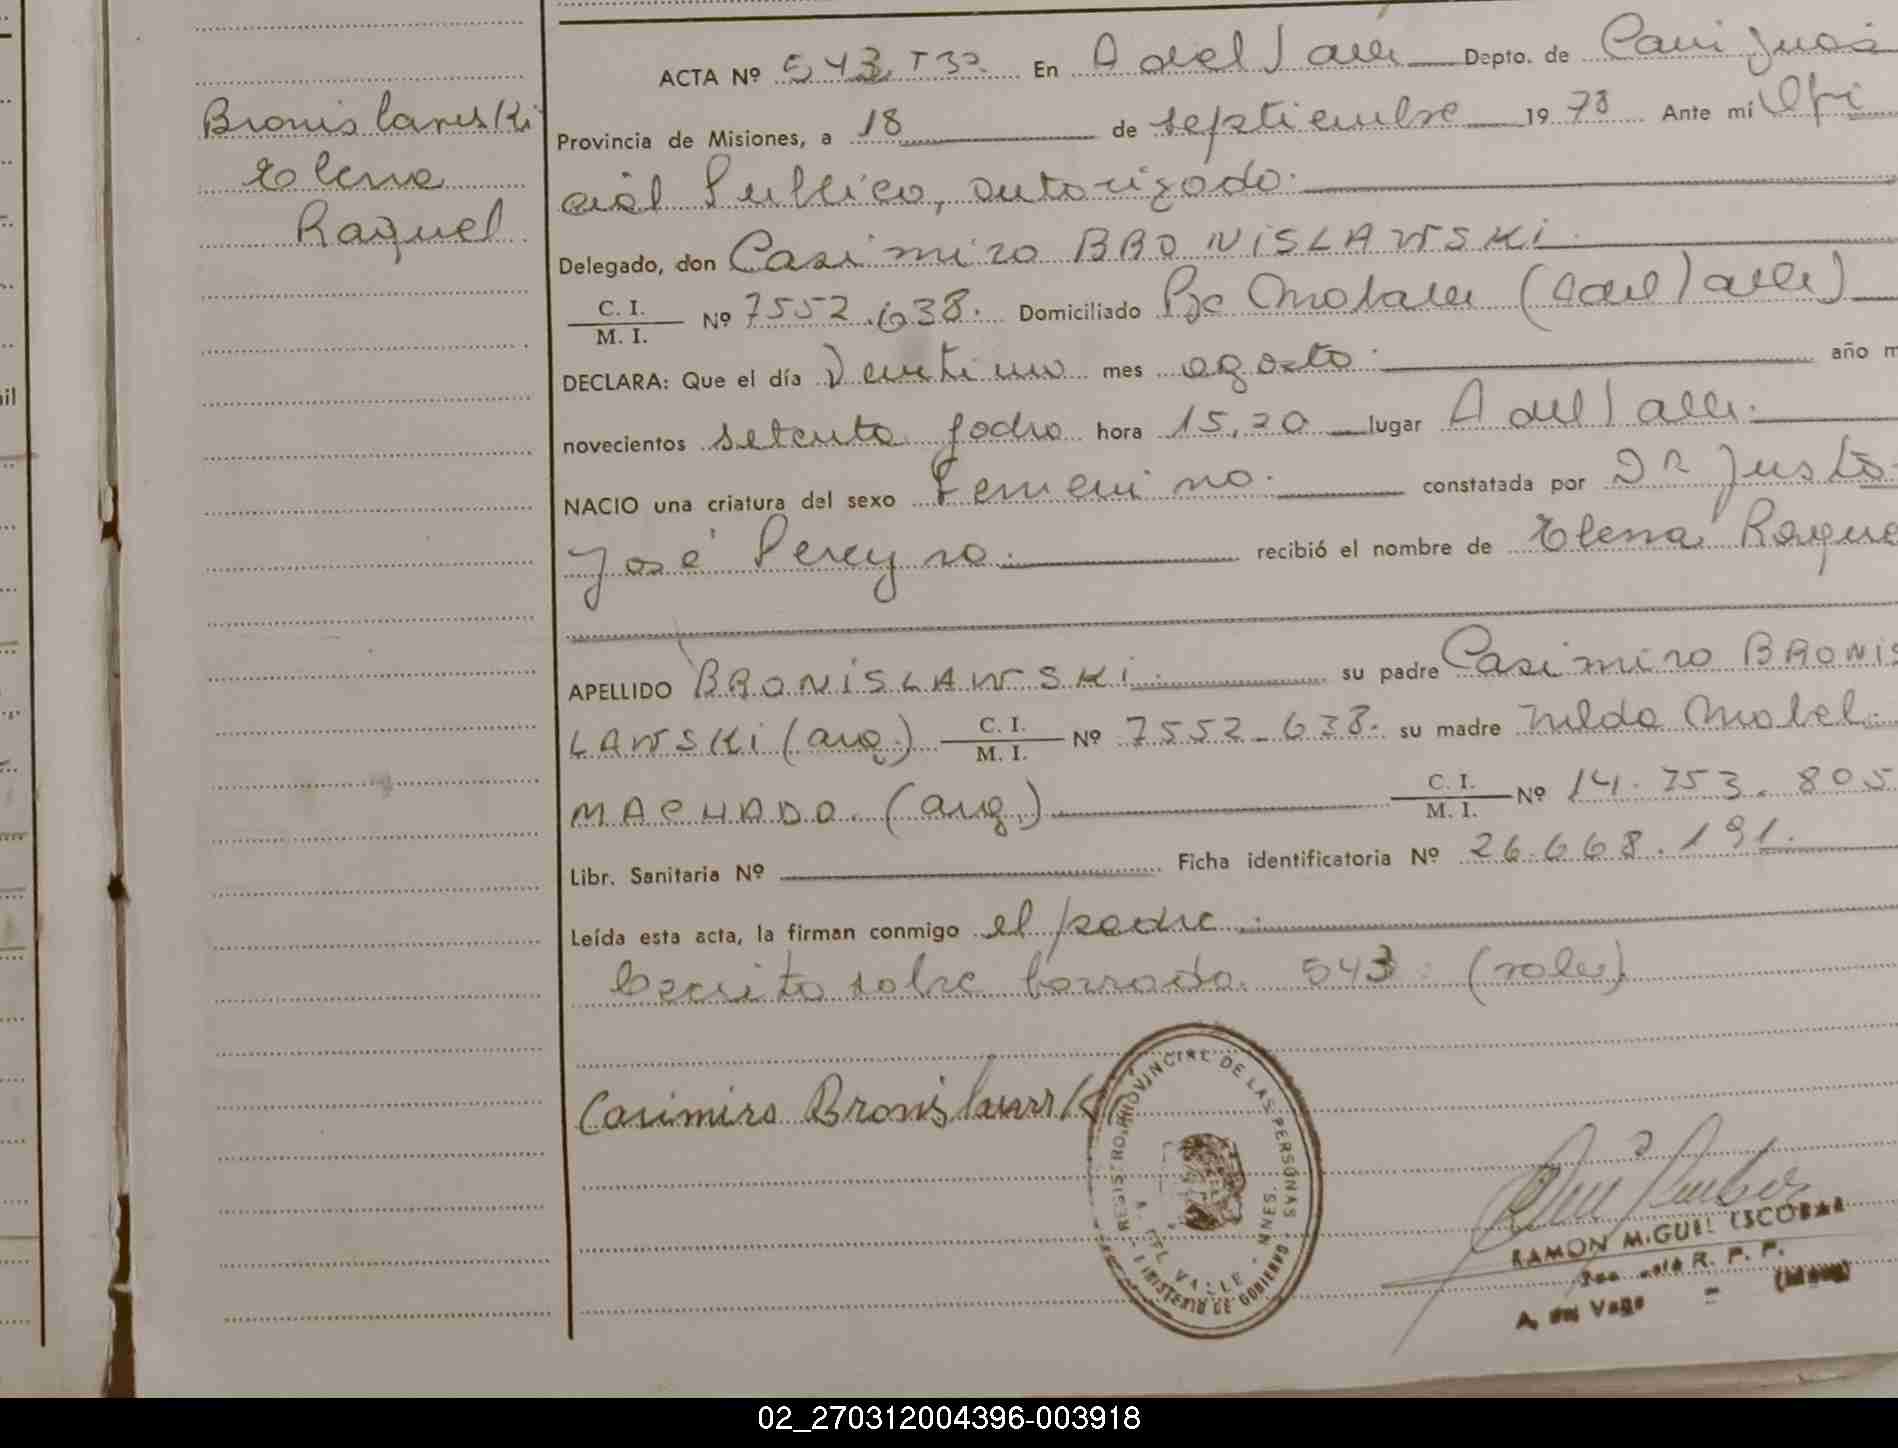 Bronislawski
Elena
Raquel
ACTA Nº 543 Tº3º En A del Valle Depto. de Caiguas
Provincia de Misiones, a 18 de septiembre 1978 Ante mí Ofi
cial Publico, autorizado.
Delegado, don Casimiro BRONISLAWSKI.
C. I.
M. I. Nº 7552.638. Domiciliado (A del Valle)
DECLARA: Que el día Veintiuno mes agosto. año m
novecientos setenta y ocho hora 15,20 lugar A del Valle.
NACIO una criatura del sexo Femenino. constatada por DR Justo
José Pereyra. recibió el nombre de Elena Raque
APELLIDO BRONISLAWSKI. su padre Casimiro BRONIS
LAWSKI (arg.) C. I.
M. I. Nº 7552.638. su madre Nelda Mabel
MACHADO. (arg.) C. I.
M. I. Nº 14.753.805
Libr. Sanitaria Nº Ficha identificatoria Nº 26.668.191.
Leída esta acta, la firman conmigo el padre.
Escrito sobre borrado. 543. (vale).
Casimiro Bronislawski
REGISTRO PROVINCIAL DE LAS PERSONAS
A. DEL VALLE - MNES.
MINISTERIO DE GOBIERNO
RAMON MIGUEL ESCOBAR
R. P. P.
A. del Valle
02_270312004396-003918